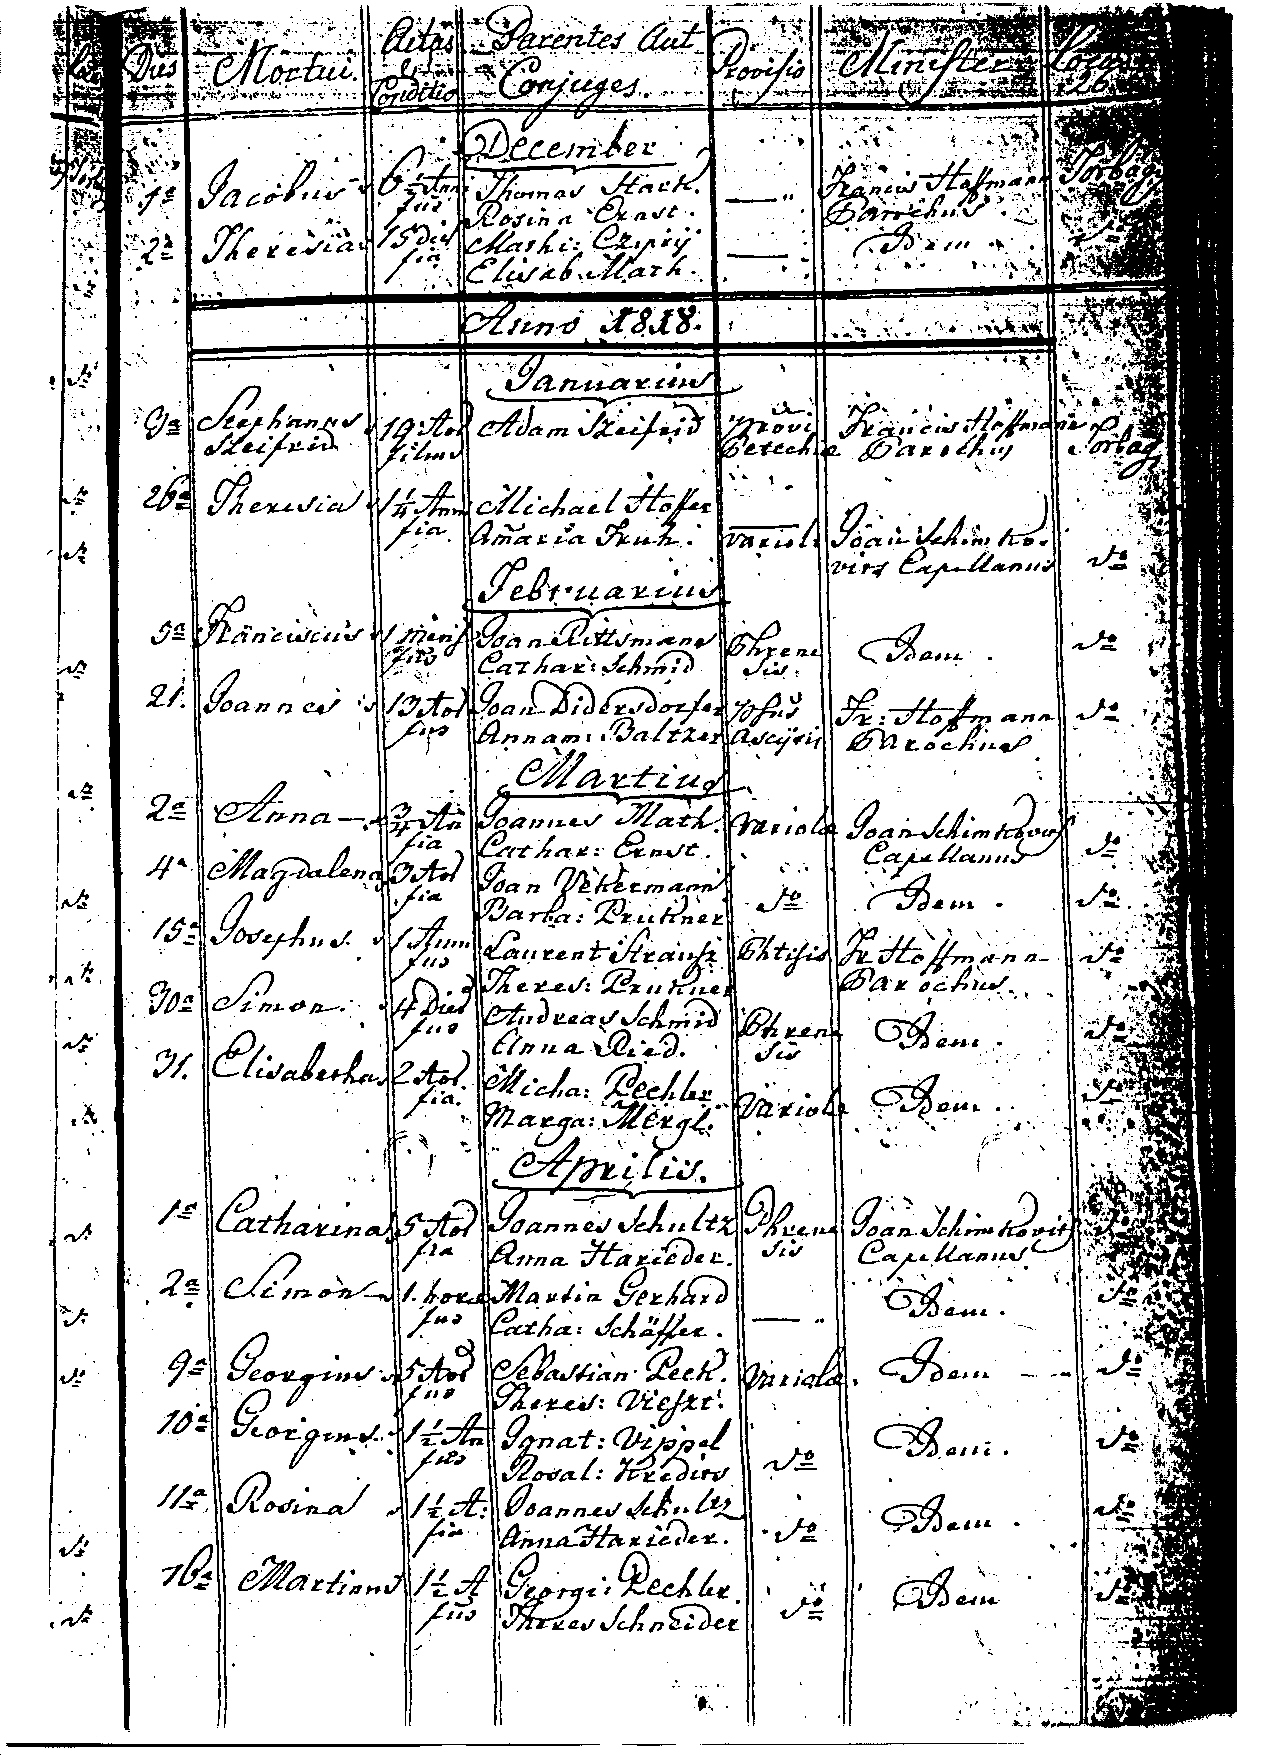 Dies Mortui. Aetas et Conditio Parentes Aut Conjuges. Provisio Minister Locus 26
December
1a Jacobus 6 1/2 Ann fius Thomas Stark. Rosina Ernst. — " Francis Hoffmann Parochus Torbagy
2a Theresia 15 Die fia Mathi: Czipry Elisab. Math. — Idem do
Anno 1818.
Januarius
9a Stephanus Szeifrid 19 Aor filius Adam Szeifrid Provi Petechie Francis Hoffmann Parochus Torbagy
26a Theresia 1 1/4 Ann fia Michael Hoffer Amaria Fruh. Variole Joan Schimko- vits Capellanus do
Februarius
5a Franciscus 1 mens fius Joan Rittsmann Cathar: Schmid Phrene sis. Idem. do
21. Joannes 13 Aor fius Joan Didersdorfer Annam: Baltzer Ascytis Fr: Hoffmann Parochus do
Martius
2a Anna — 3/4 An fia Joannes Math. Cathar: Ernst. Variola Joan Schimkovits Capellanus do
4a Magdalena 3 Aor fia Joan Vekermann Barba: Prukner do Idem. do
15a Josephus. 1 Ann fius Laurent Strausz Theres: Prukner Phtisis Fr Hoffmann Parochus. do
30a Simon. 4 Die fius Andreas Schmid Anna Ried. Phrene sis Idem. do
31. Elisabetha 2 Aor. fia. Micha: Pechler Marga: Mergl. Variola Idem. do
Aprilis.
1a Catharina 5 Aor fia Joannes Schultz Anna Harieder. Phrene sis Joan Schimkovits Capellanus do
2a Simon 1. hora fius Martin Gerhard Catha: Schäffer. — . Idem. do
9a Georgius 5 Aor fius Sebastian Peck. Theres: Vieszt. Variola. Idem — do
10a Georgius. 1 1/2 An fius Ignat: Vippel Rosal: Kredits do Idem. do
11a Rosina 1 1/2 A: fia Joannes Schultz Anna Harieder. do Idem. do
16a Martinus 1 1/2 A fius Georgi: Pechler. Theres Schneider do Idem do